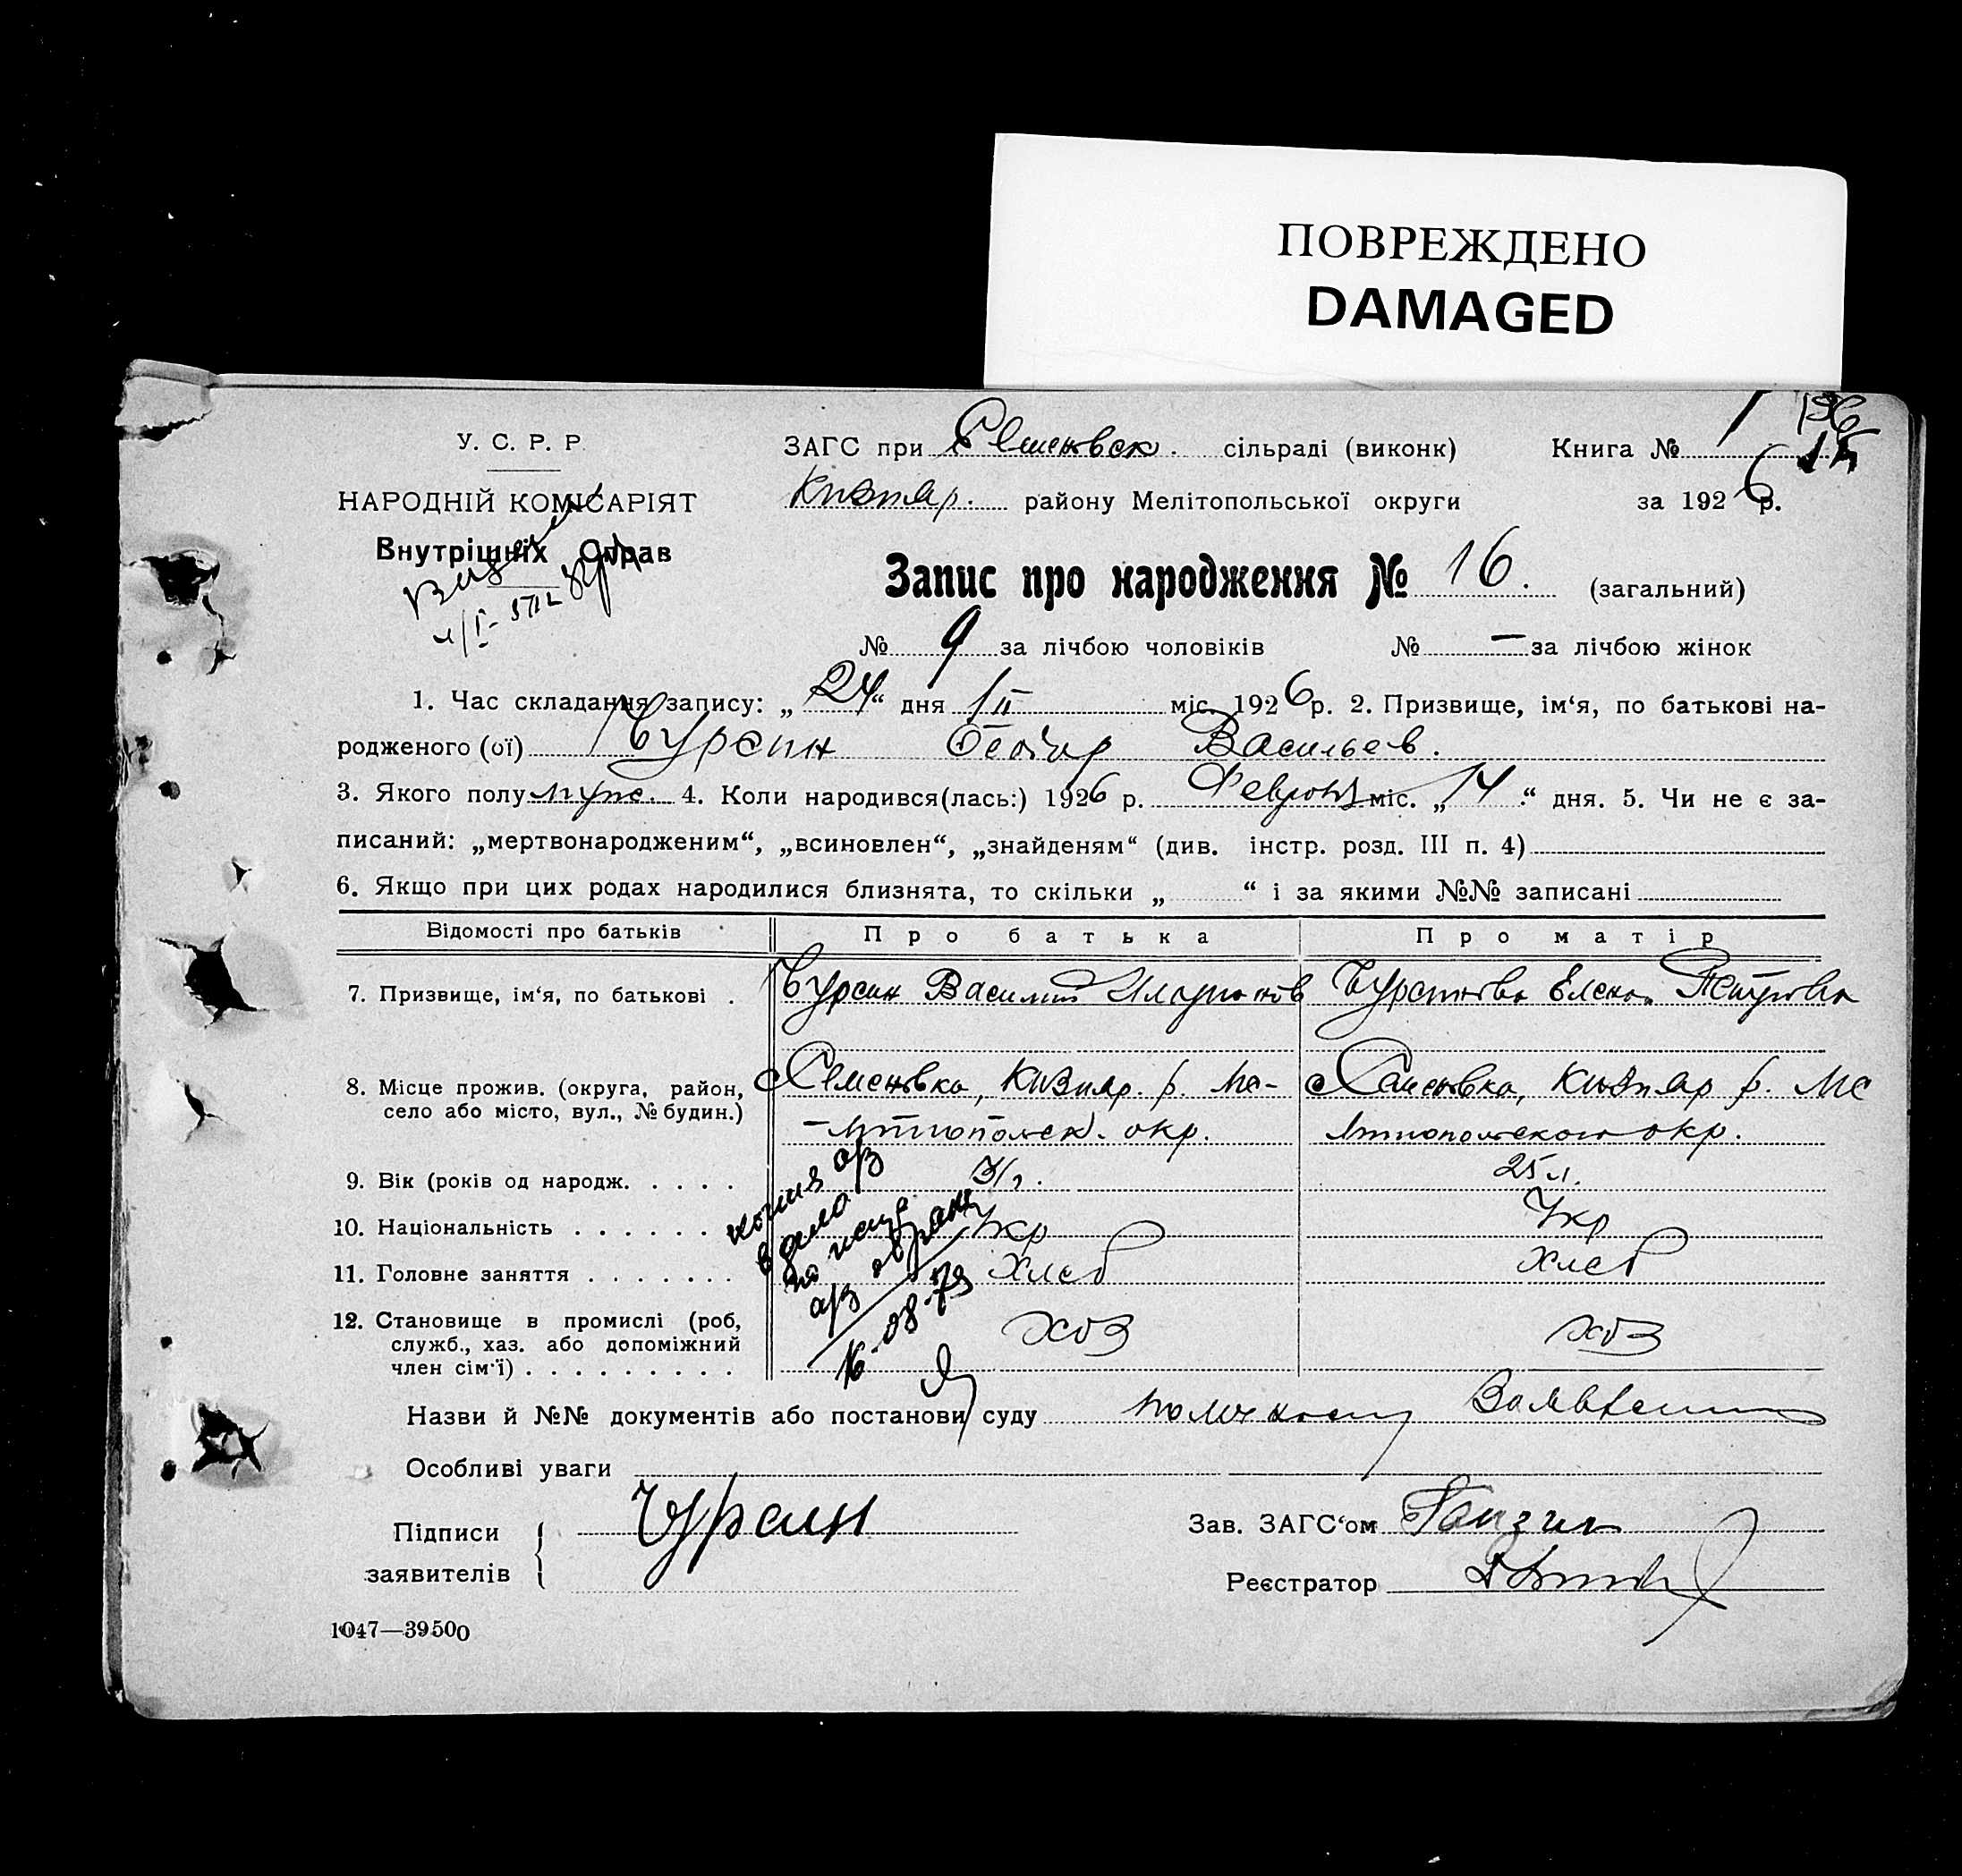 ПОВРЕЖДЕНО
DAMAGED
У. С. Р. Р.
НАРОДНІЙ КОМІСАРІЯТ
Внутрішніх Справ
ЗАГС при Семеновск. сільраді (виконк) Книга № 1
Кизияр. району Мелітопольської округи за 1926 р.
Запис про народження № 16. (загальний)
№ 9 за лічбою чоловіків № — за лічбою жінок
1. Час складання запису: „24“ дня ІІ міс. 1926 р. 2. Призвище, ім‘я, по батькові на-
родженого (ої) Чурсин Федор Васильев.
3. Якого полу муж. 4. Коли народився(лась:) 1926 р. Февраля міс. „14“ дня. 5. Чи не є за-
писаний: „мертвонародженим“, „всиновлен“, „знайденям“ (див. інстр. розд. III п. 4)
6. Якщо при цих родах народилися близнята, то скільки „ “ і за якими №№ записані
Відомості про батьків Про батька Про матір
7. Призвище, ім‘я, по батькові . Чурсин Василий Иларионов Чурсинова Елена Петровна
8. Місце прожив. (округа, район, село або місто, вул., № будин.) с Семеновка, Кизияр. р. Ме- с Семеновка, Кизияр р. Ме
литопольск. окр. литопольского окр.
9. Вік (років од народж. . . . . 31 г. 25 л.
10. Національність . . . . . . Укр Укр
11. Головне заняття . . . . . . . Хлеб Хлеб
12. Становище в промислі (роб, служб., хаз. або допоміжний член сім‘ї) . . . . . . . . . хоз хоз
копия а/з
в дело
а/з
16.08.73
Назви й №№ документів або постанови суду
Особливі уваги
Підписи заявителів Чурсин
Зав. ЗАГС‘ом
Реєстратор
1047—39500